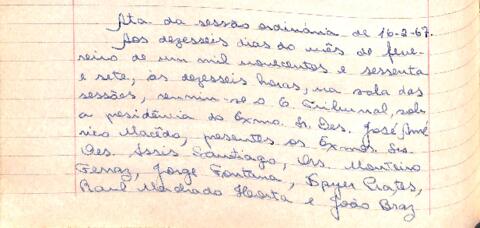 Ata da sessão ordinária de 16-2-67.
Aos dezesseis dias do mês de feve-
reiro de um mil novecentos e sessenta
e sete, às dezesseis horas, na sala das
sessões, reuniu-se o E. Tribunal, sob
a presidência do Exmo. Sr. Des. José Amé
rico Macêdo, presentes os Exmos. Srs.
Des. Assis Santiago, Drs. Monteiro
Ferraz, Jorge Fontana, Prates,
Raul Machado Horta e João Braz